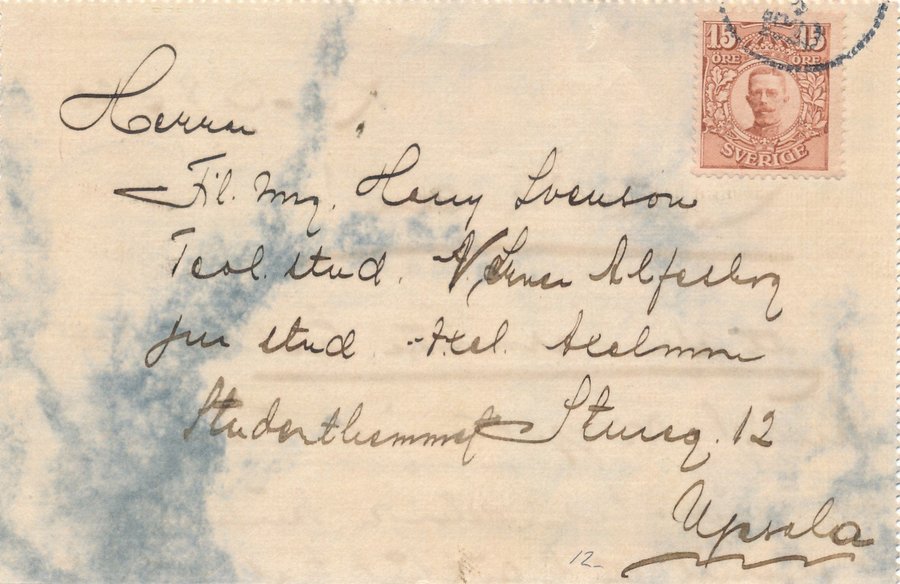 15 15
ÖRE ÖRE
SVERIGE
Herrar
Fil. mg. Harry Svenson
Teol. stud. Alfeborg
jur stud. Axel. Axelman
Studenthemmet Stureg. 12
Upsala
12-